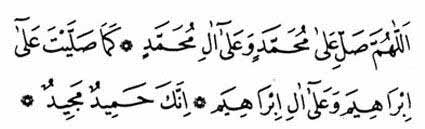 اَللّٰهُمَّ صَلِّ عَلٰى مُحَمَّدٍ وَعَلٰٓى اٰلِ مُحَمَّدٍ ۞ كَمَا صَلَّيْتَ عَلٰٓى
اِبْرَاهِيمَ وَعَلٰٓى اٰلِ اِبْرَاهِيمَ ۞ اِنَّكَ حَمِيدٌ مَجِيدٌ ۞